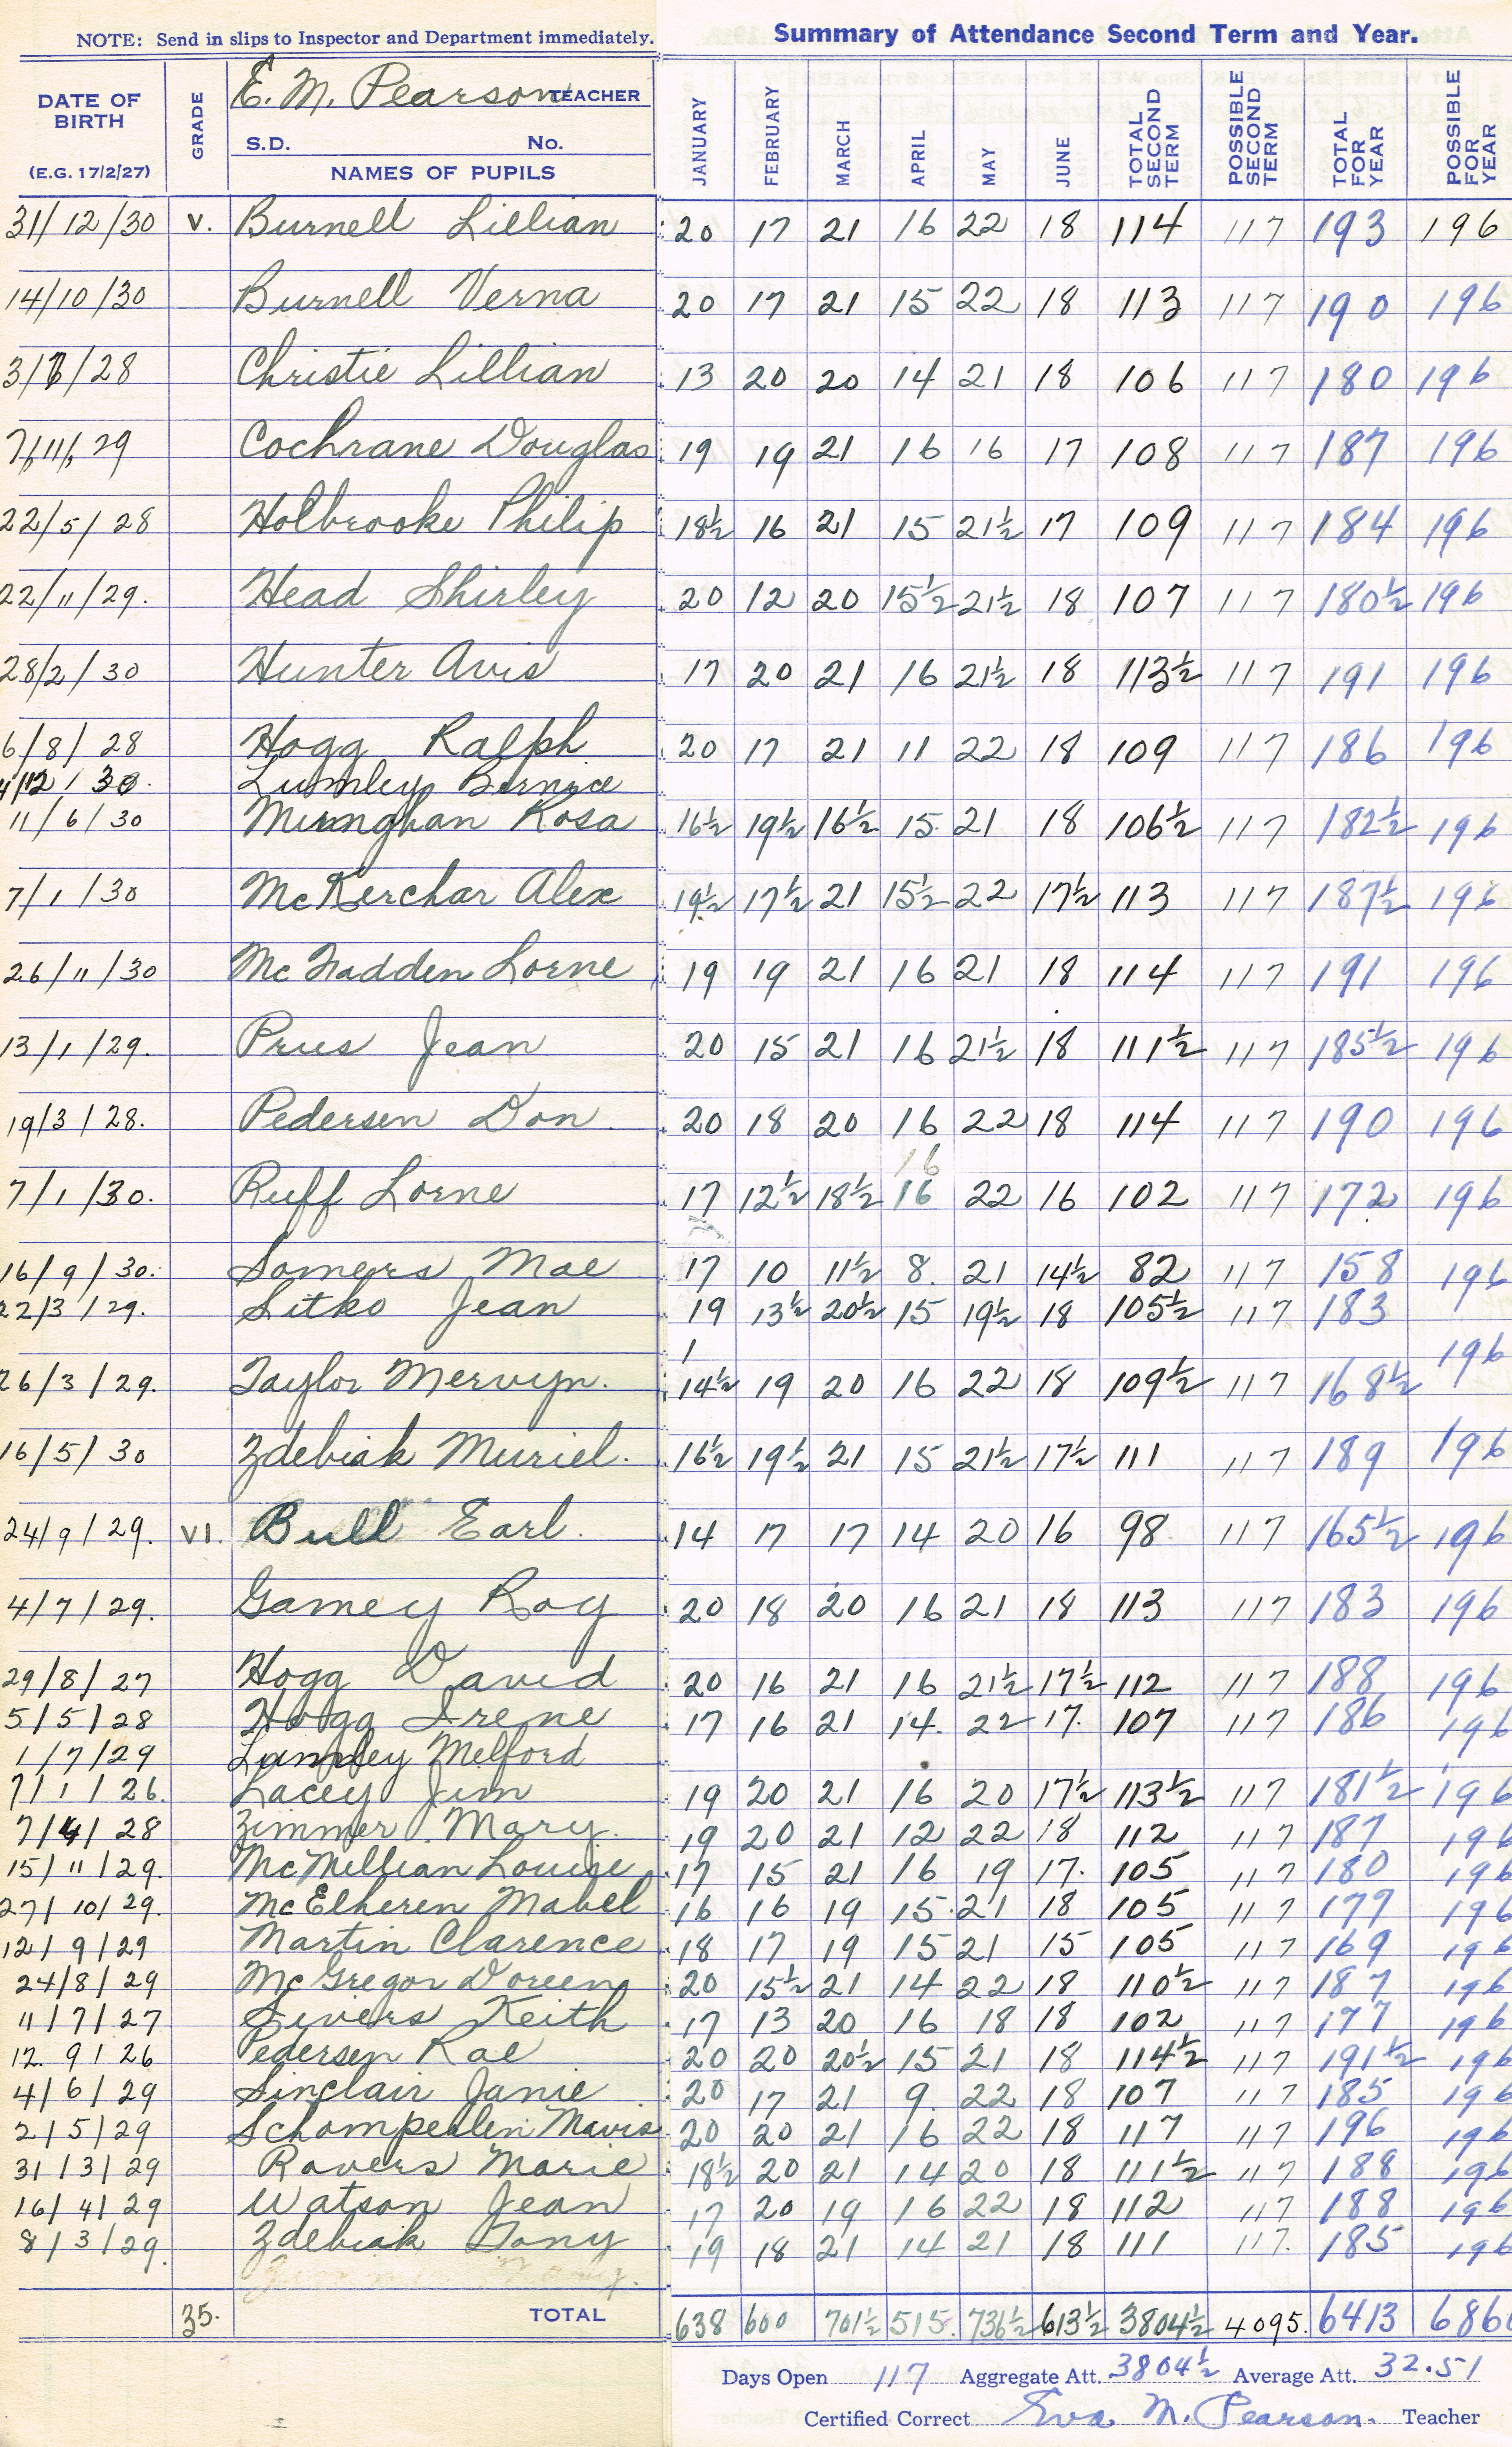 NOTE: Send in slips to Inspector and Department immediately. Summary of Attendance Second Term and Year.
DATE OF BIRTH (E.G. 17/2/27) GRADE E. M. Pearson TEACHER S.D. No. NAMES OF PUPILS JANUARY FEBRUARY MARCH APRIL MAY JUNE TOTAL SECOND TERM POSSIBLE SECOND TERM TOTAL FOR YEAR POSSIBLE FOR YEAR
31/12/30 V. Burnell Lillian 20 17 21 16 22 18 114 117 193 196
14/10/30 Burnell Verna 20 17 21 15 22 18 113 117 190 196
28 Christie Lillian 13 20 20 14 21 18 106 117 180 196
7/11/29 Cochrane Douglas 19 19 21 16 16 17 108 117 187 196
22/5/28 Holbrooke Philip 18½ 16 21 15 21½ 17 109 117 184 196
22/11/29. Head Shirley 20 12 20 15½ 21½ 18 107 117 180½ 196
28/2/30 Hunter Avis 17 20 21 16 21½ 18 113½ 117 191 196
6/8/28 Hogg Ralph 20 17 21 11 22 18 109 117 186 196
Lumley Bernice
11/6/30 Rosa 16½ 19½ 16½ 15 21 18 106½ 117 182½ 196
7/1/30 McKerchar Alex 19½ 17½ 21 15½ 22 17½ 113 117 187½ 196
26/11/30 McFadden Lorne 19 19 21 16 21 18 114 117 191 196
13/1/29. Prus Jean 20 15 21 16 21½ 18 111½ 117 185½ 196
19/3/28. Pedersen Don 20 18 20 16 22 18 114 117 190 196
16
7/1/30. Ruff Lorne 17 12½ 18½ 16 22 16 102 117 172 196
16/9/30. Somers Mae 17 10 11½ 8. 21 14½ 82 117 158 196
22/3/29. Sitko Jean 19 13½ 20½ 15 19½ 18 105½ 117 183
1 196
26/3/29. Taylor Mervyn. 14½ 19 20 16 22 18 109½ 117 168½
16/5/30 Zdebiak Muriel. 16½ 19½ 21 15 21½ 17½ 111 117 189 196
24/9/29. VI. Bull Earl. 14 17 17 14 20 16 98 117 165½ 196
4/7/29. Gamey Roy 20 18 20 16 21 18 113 117 183 196
29/8/27 Hogg David 20 16 21 16 21½ 17½ 112 117 188 196
5/5/28 Hogg Irene 17 16 21 14. 22 17. 107 117 186 196
1/7/29 Lumley Melford
7/1/26. Lacey Jim 19 20 21 16 20 17½ 113½ 117 181½ 196
7/4/28 Zimmer Mary. 19 20 21 12 22 18 112 117 187 196
15/11/29. McMillian Louise 17 15 21 16 19 17. 105 117 180 196
27/10/29. McElheren Mabel 16 16 19 15. 21 18 105 117 177 196
12/9/29 Martin Clarence 18 17 19 15 21 15 105 117 169 196
24/8/29 McGregor Doreen 20 15½ 21 14 22 18 110½ 117 187 196
11/7/27 Sivers Keith 17 13 20 16 18 18 102 117 177 196
12. 9/26 Pedersen Rae 20 20 20½ 15 21 18 114½ 117 191½ 196
4/6/29 Sinclair Janie 20 17 21 9. 22 18 107 117 185 196
2/5/29 Mavis 20 20 21 16 22 18 117 117 196 196
31/3/29 Ravers Marie 18½ 20 21 14 20 18 111½ 117 188 196
16/4/29 Watson Jean 17 20 19 16 22 18 112 117 188 196
8/3/29. Zdebiak Tony 19 18 21 14 21 18 111 117. 185 196
35. TOTAL 638 600 701½ 515. 736½ 613½ 3804½ 4095. 6413 686
Days Open 117 Aggregate Att. 3804½ Average Att. 32.51
Certified Correct Eva M. Pearson. Teacher